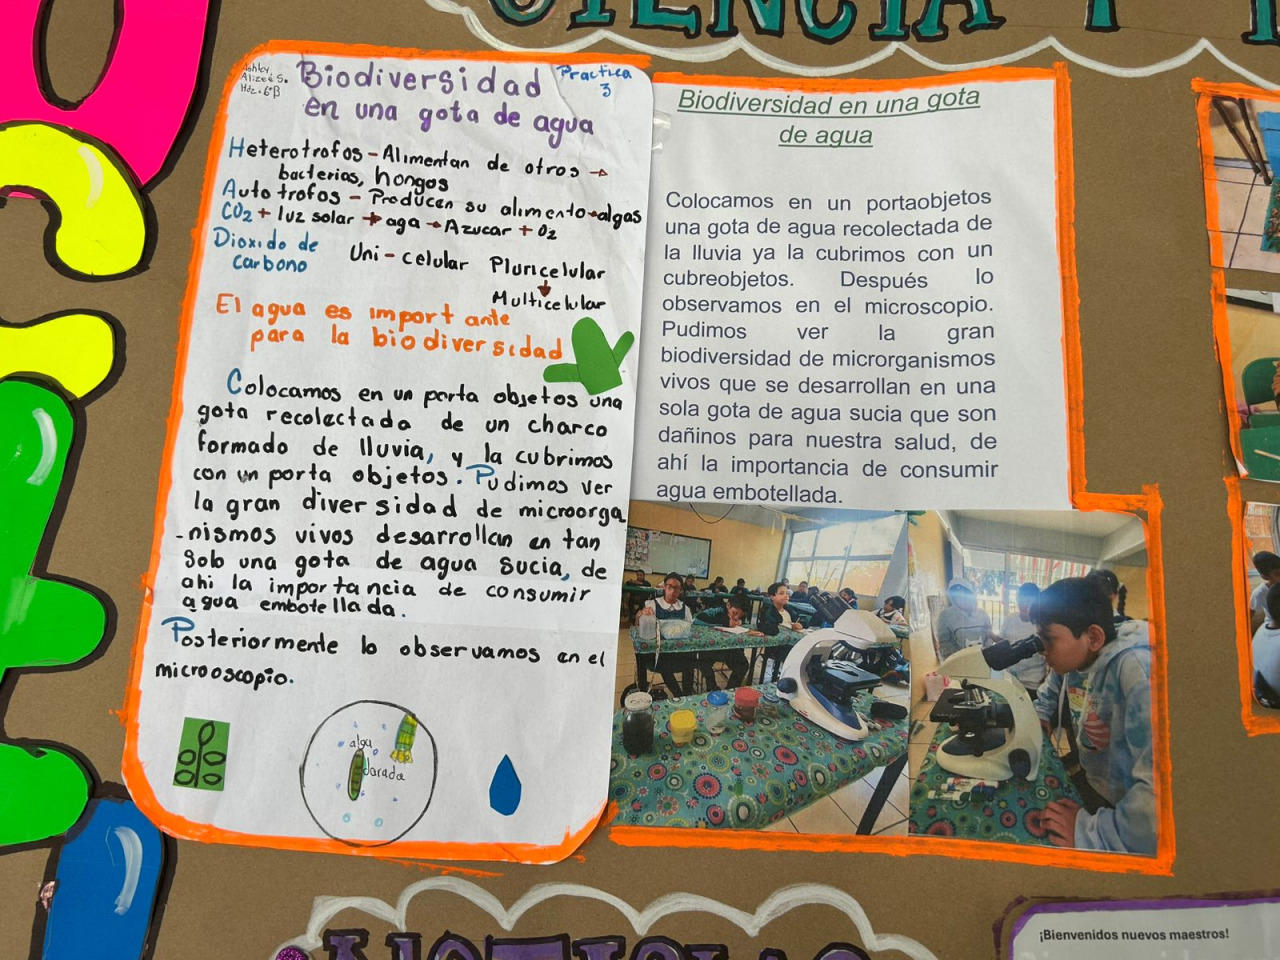 CIENCIA Y
Ashley
Alizeé S.
Hdz. 6°B
Biodiversidad
en una gota de agua
Practica
3
Heterotrofos - Alimentan de otros →
bacterias, hongos
Autotrofos - Producen su alimento → algas
CO2 + luz solar → aga → Azucar + O2
Dioxido de
carbono
Uni-celular Pluricelular
Multicelular
El agua es importante
para la biodiversidad
Colocamos en un porta objetos una
gota recolectada de un charco
formado de lluvia, y la cubrimos
con un porta objetos. Pudimos ver
la gran diversidad de microorga
-nismos vivos desarrollan en tan
solo una gota de agua sucia, de
ahi la importancia de consumir
agua embotellada.
Posteriormente lo observamos en el
microoscopio.
alga
dorada
Biodiversidad en una gota
de agua
Colocamos en un portaobjetos
una gota de agua recolectada de
la lluvia ya la cubrimos con un
cubreobjetos. Después lo
observamos en el microscopio.
Pudimos ver la gran
biodiversidad de microrganismos
vivos que se desarrollan en una
sola gota de agua sucia que son
dañinos para nuestra salud, de
ahí la importancia de consumir
agua embotellada.
¡Bienvenidos nuevos maestros!